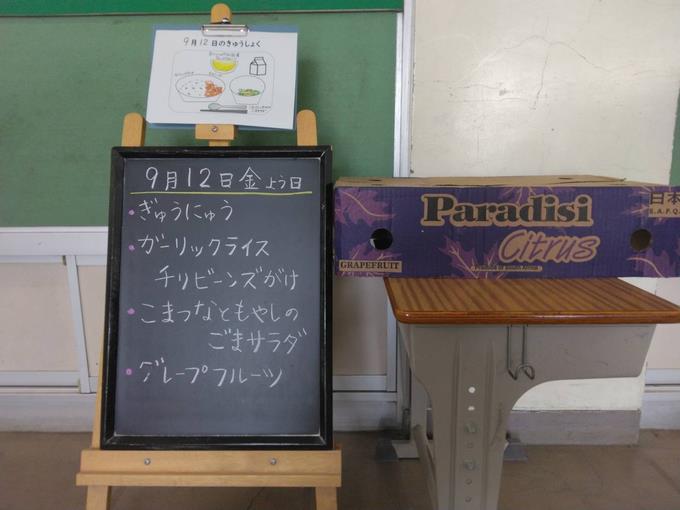 9月12日のきゅうしょく
9月12日金よう日
・ぎゅうにゅう
・ガーリックライス
チリビーンズがけ
・こまつなともやしの
ごまサラダ
・グレープフルーツ
Paradisi
Citrus
GRAPEFRUIT
日本
S.A.F.Q.